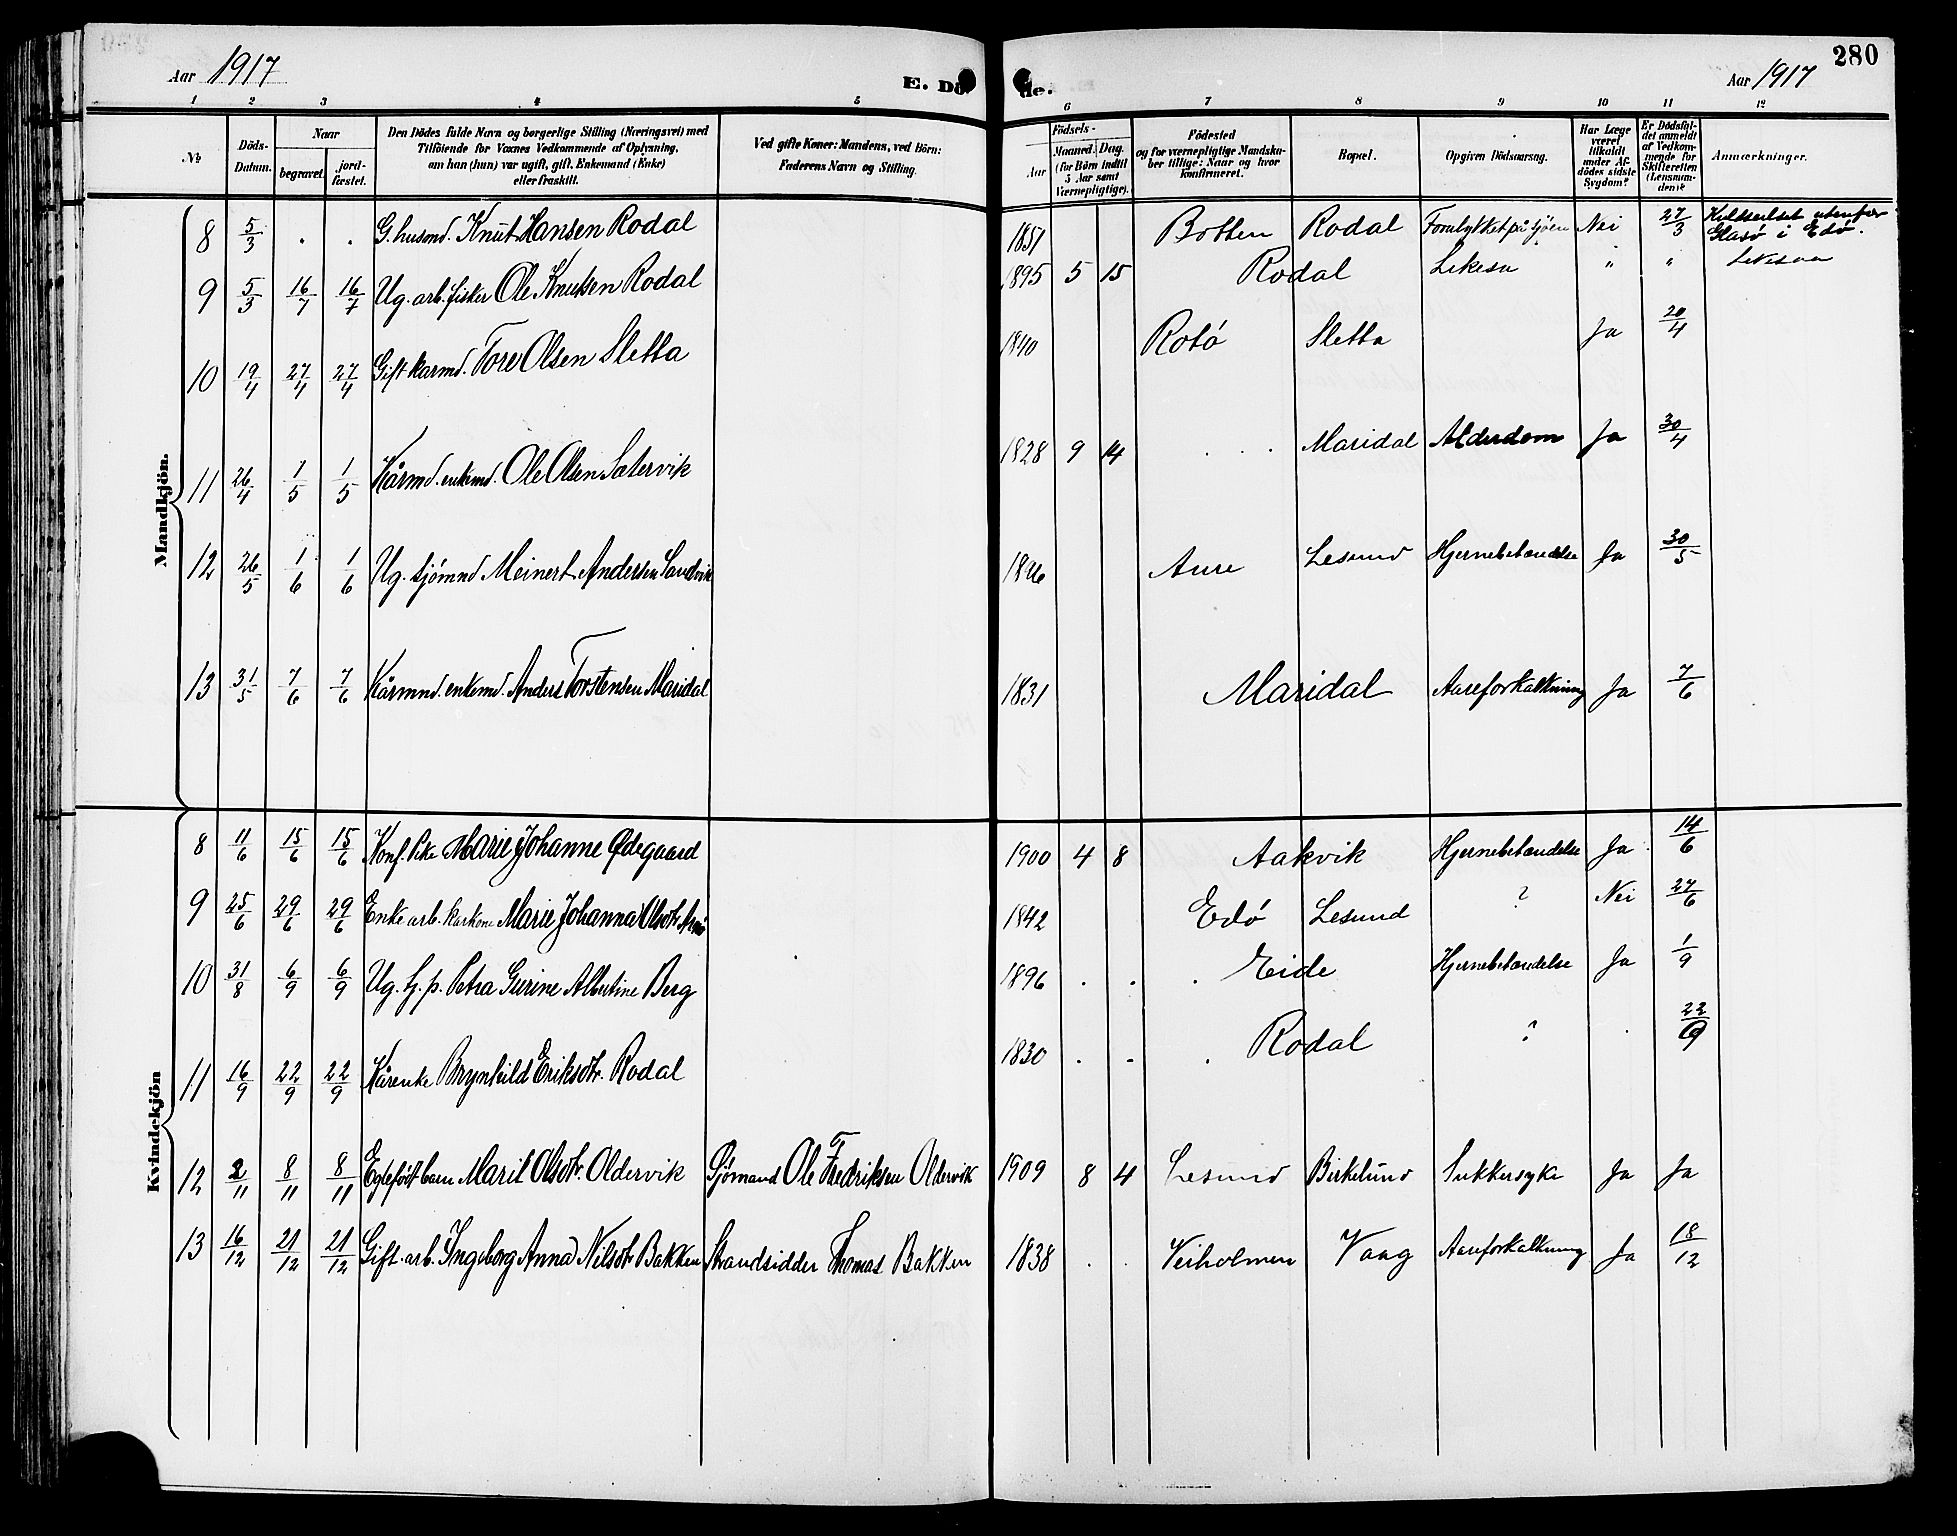 280
Aar 1917
E. Dö
de.
Aar 1917
1 2 3 4 5 6 7 8 9 10 11 12
No
Döds-Datum.
Naar
begravet.
jord-fæstet.
Den Dödes fulde Navn og borgerlige Stilling (Næringsvei) med
Tilföiende for Voxnes Vedkommende af Oplysning,
om han (hun) var ugift, gift, Enkemand (Enke)
eller fraskilt.
Ved gifte Koner: Mandens, ved Börn:
Faderens Navn og Stilling.
Födsels-
Aar
Maaned. Dag.
(for Börn indtil
5 Aar samt
Værnepligtige).
Födested
og for værnepligtige Mandska-
ber tillige: Naar og hvor
konfirmeret.
Bopæl.
Opgiven Dödsaarsag.
Har Læge
været
tilkaldt
under Af-
dödes sidste
Sygdom?
Er Dödsfal-
det anmeldt
af Vedkom-
mende for
Skifteretten
(Lensman-
den)?
Anmærkninger.
Mandkjön.
8 5/3 . . G. husmd. Knut Hansen Rodal 1851 Botten Rodal Forulykket på sjøen Nei 27/3 Hvltseilset utenfor
Glasø i Edø.
9 5/3 16/7 16/7 Ug. arb. fisker Ole Knutsen Rodal 1895 5 15 Rodal Likesaa " " Likesaa
10 19/4 27/4 27/4 Gift karmd. Tore Olsen Sletta 1840 Rotø Sletta Ja 20/4
11 26/4 1/5 1/5 Kårmd. enkemd. Ole Olsen Sætervik 1828 9 14 . . . Maridal Alderdom Ja 30/4
12 26/5 1/6 1/6 Ug. sjømnd Meinert Andersen Sandvik 1896 Aure Lesund Hjernebetændelse Ja 30/5
13 31/5 7/6 7/6 Kårmnd. enkemd. Anders Torstensen Maridal 1831 Maridal Aareforkalkning Ja 7/6
Kvindekjön
8 11/6 15/6 15/6 Konf. Pike Marie Johanne Ødegaard 1900 4 8 Aakvik Hjernebetændelse Ja 14/6
9 25/6 29/6 29/6 Enke arb. karkone Marie Johanna Olsdtr. 1842 Edø Lesund ? Nei 27/6
10 31/8 6/9 6/9 Ug. tj. p. Petra Gurine Albertine Berg 1896 . . . Eide Hjernebetændelse Ja 1/9
11 16/9 22/9 22/9 Kårenke Brynhild Eriksdtr. Rodal 1830 . . . Rodal ? . 22/9
12 2/11 8/11 8/11 Egtefødt barn Marit Olsdtr. Oldervik Sjømand Ole Fredriksen Oldervik 1909 8 4 Lesund Birkelund Sukkersyke Ja Ja
13 16/12 21/12 21/12 Gift. arb. Ingeborg Anna Nilsdtr Bakken Strandsidder Thomas Bakken 1838 . . Veiholmen Vaag Aareforkalkning Ja 18/12